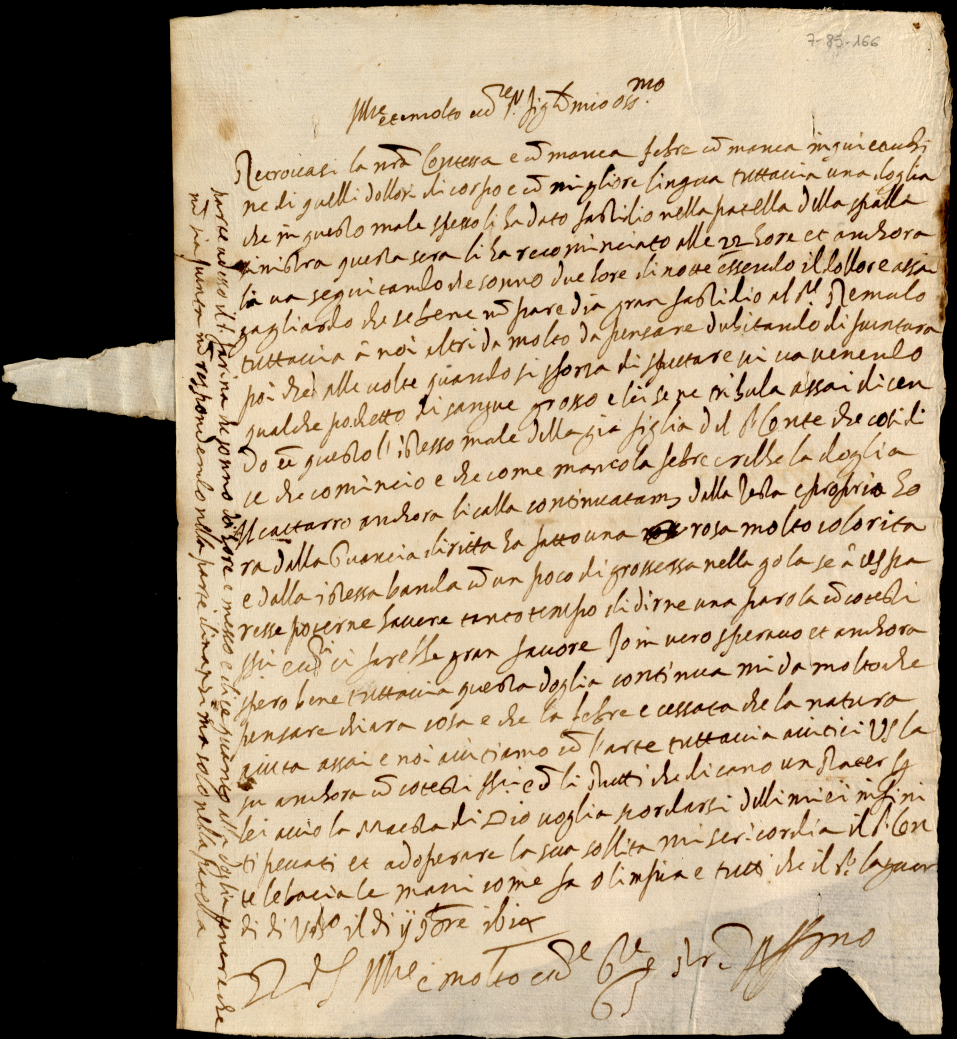 7-85-166
Ill.re et molto ecc.te S.r Sig.r mio oss.mo
Retrovasi la n̄ra Contessa e cō manca febre cō manca inquietudi
ne di quelli dollori di corpo e cō migliore lingua tuttavia una doglia
che in questo male spesso li ha dato fastidio nella patella della spalla
sinistra questa sera li ha recominciato alle 22 hore et anchora
li va seguitando che sonno due hore di notte essendo il dollore assai
gagliardo che se bene nō pare dia gran fastidio al S.r Remulo
tuttavia à noi altri da molto da pensare dubitando di puntura
poi che alle volte quando si sforza di sputare vi va venendo
qualche pochetto di sangue grosso e lei se ne tribula assai dicen
do è questo l'istesso male della gia figlia del S.r Conte che così di
ce che cominciò e che come mancò la febre crebbe la doglia
Il cattarro anchora li calla continuatam.te dalla testa e proprio ho
ra dalla Guancia diritta ha fatto una rosa molto colorita
e dalla istessa banda cō un poco di grossessa nella gola se à VS pa
resse poterne havere tanto tempo di dirne una parola cō cotesti
ssi ecc.ti ci sarebbe gran favore Io in vero speravo et anchora
spero bene tuttavia questa doglia continua mi da molto che
pensare chiara cosa e che la febre e cessata che la natura
aiuta assai e noi aiutiamo cō l'arte tuttavia aiutici VS la
su anchora cō cotesti ssi e cō li Putti che dicano un Pater p
lei acciò la Maestà di Dio voglia scordarsi delli miei infini
ti peccati et adoperare la sua sollita misericordia il S.r Con
te le bacia le mani come fa Olimpia e tutti che il S.r la guar
di di il di ij
D VS Ill.re e molto ecc.te
parce adesso di farina che sonno hore e messo e dice quanto alla doglia pare che
nō sia puntura nō respondendo nella parte dinanzi ma solo nella patella